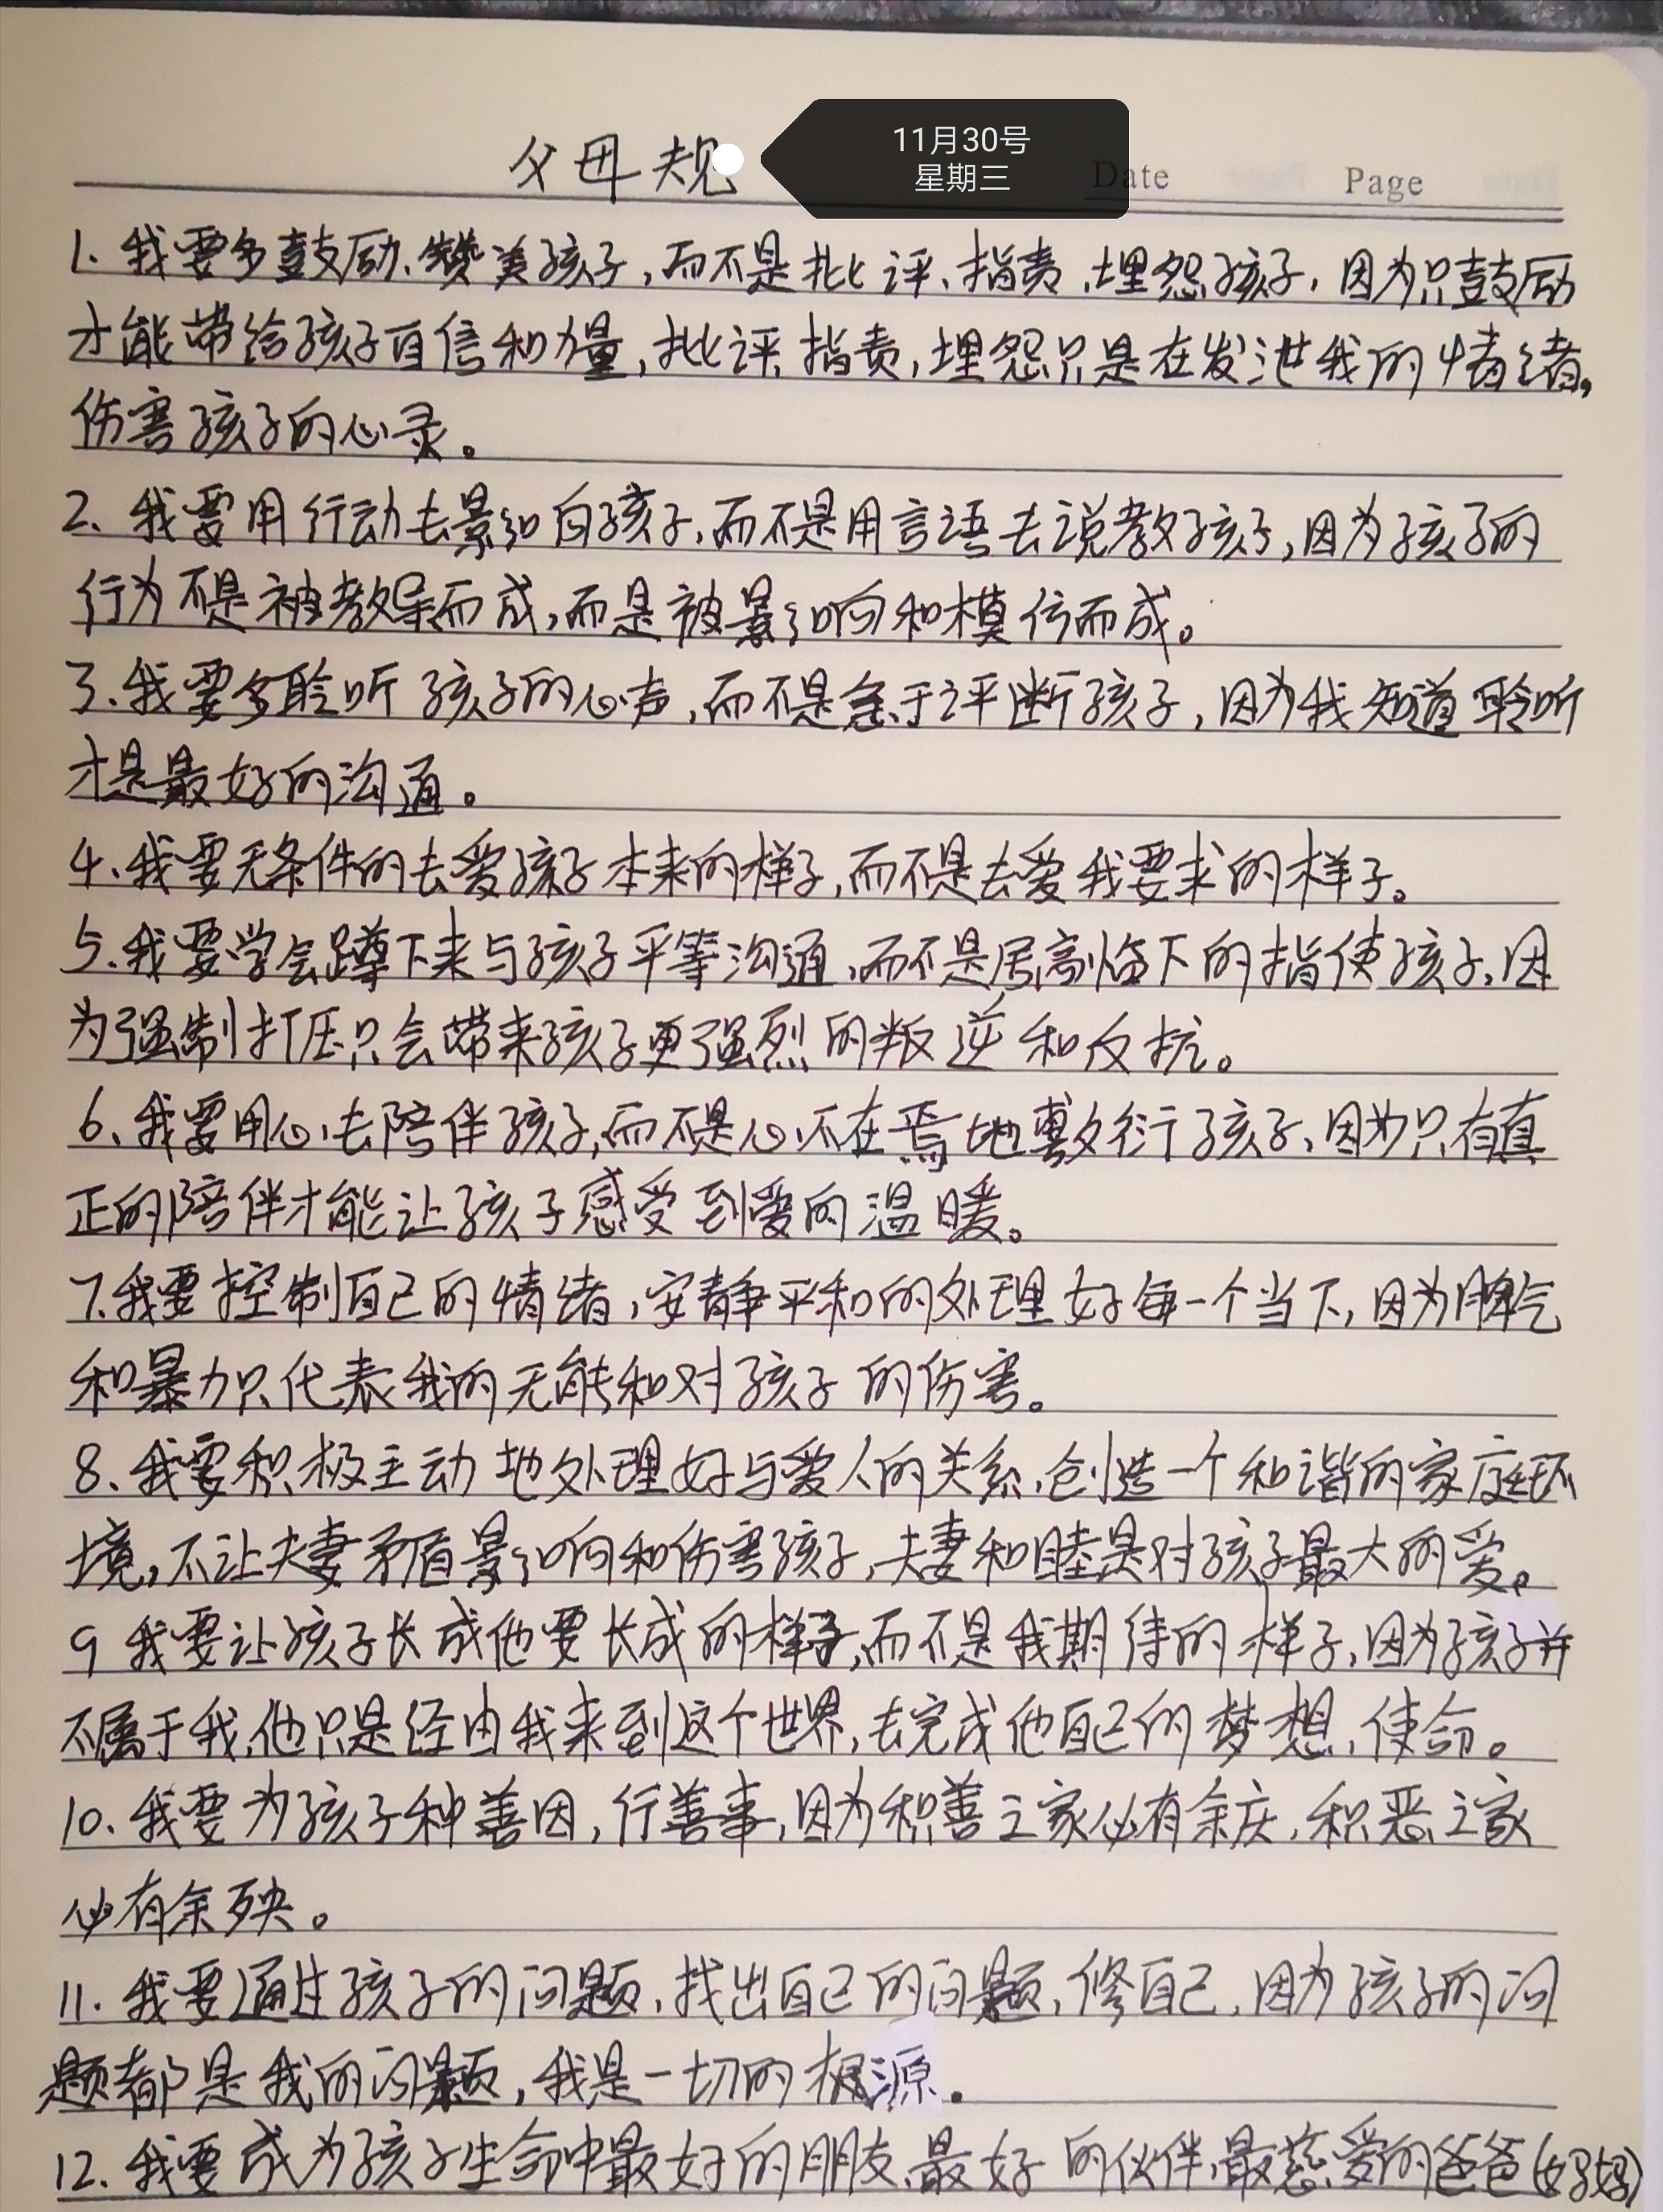 父母规
11月30号
星期三
Date Page
1.我要多鼓励、赞美孩子,而不是批评、指责、埋怨孩子,因为只鼓励
才能带给孩子自信和力量,批评、指责,埋怨只是在发泄我的情绪,
伤害孩子的心灵。
2、我要用行动去影响孩子,而不是用言语去说教孩子,因为孩子的
行为不是被教导而成,而是被影响和模仿而成。
3、我要多聆听孩子的心声,而不是急于评断孩子,因为我知道聆听
才是最好的沟通。
4、我要无条件的去爱孩子本来的样子,而不是去爱我要求的样子。
5、我要学会蹲下来与孩子平等沟通,而不是居高临下的指使孩子,因
为强制打压只会带来孩子更强烈的叛逆和反抗。
6、我要用心去陪伴孩子,而不是心不在焉地敷衍孩子,因为只有真
正的陪伴才能让孩子感受到爱的温暖。
7、我要控制自己的情绪,安静平和的处理好每一个当下,因为脾气
和暴力只代表我的无能和对孩子的伤害。
8、我要积极主动地处理好与爱人的关系,创造一个和谐的家庭环
境,不让夫妻矛盾影响和伤害孩子,夫妻和睦是对孩子最大的爱。
9我要让孩子长成他要长成的样子,而不是我期待的样子,因为孩子并
不属于我,他只是经由我来到这个世界,去完成他自己的梦想、使命。
10.我要为孩子种善因,行善事,因为积善之家必有余庆,积恶之家
必有余殃。
11.我要通过孩子的问题,找出自己的问题,修自己,因为孩子的问
题都是我的问题,我是一切的根源。
12.我要成为孩子生命中最好的朋友、最好的伙伴、最慈爱的爸爸(妈妈)